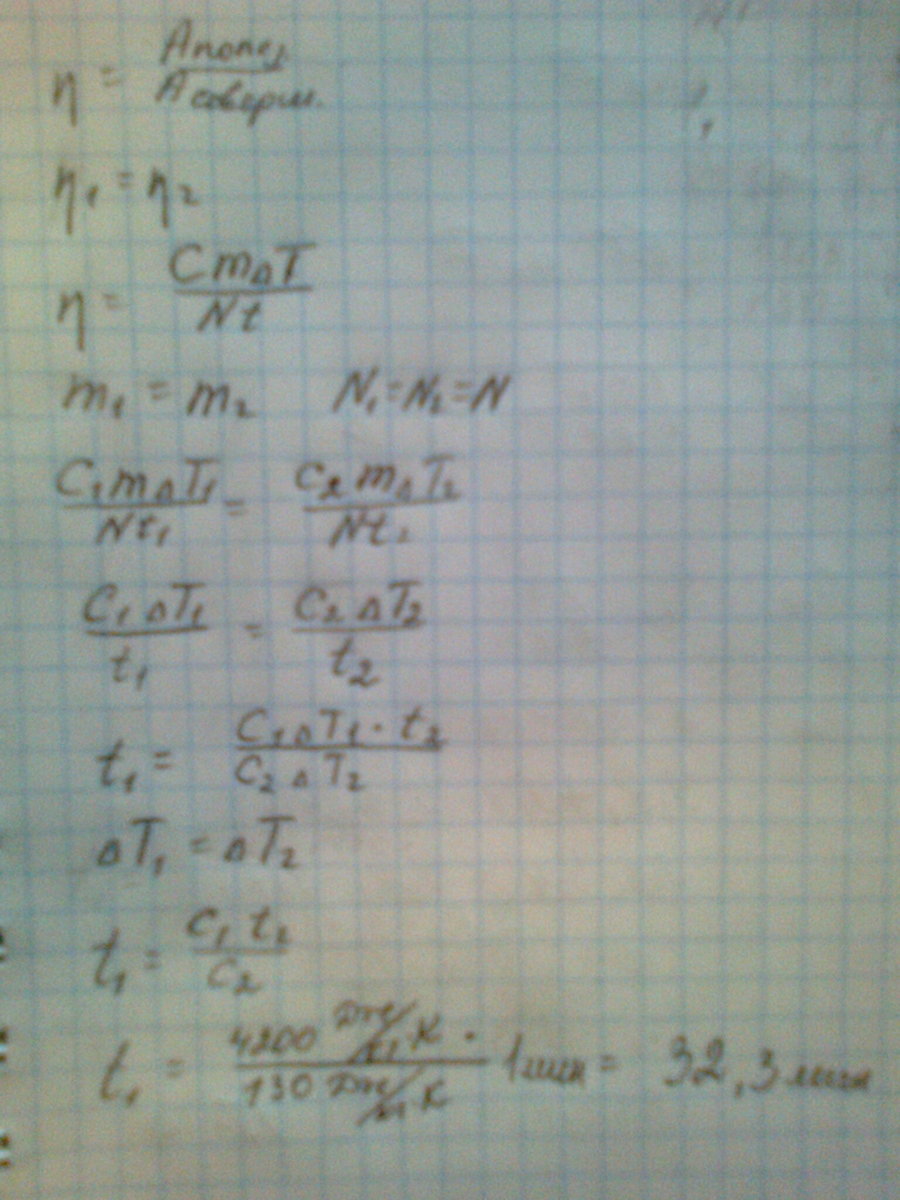 η = Aполез / Aсоверш.
η₁ = η₂
η = CmΔT / Nt
m₁ = m₂ N₁=N₂=N
C₁mΔT₁ / Nt₁ = C₂mΔT₂ / Nt₂
C₁ΔT₁ / t₁ = C₂ΔT₂ / t₂
t₁ = C₁ΔT₁·t₂ / C₂ΔT₂
ΔT₁ = ΔT₂
t₁ = C₁t₂ / C₂
t₁ = 4200 Дж/кг·К · / 130 Дж/кг·К 1 мин = 32,3 мин